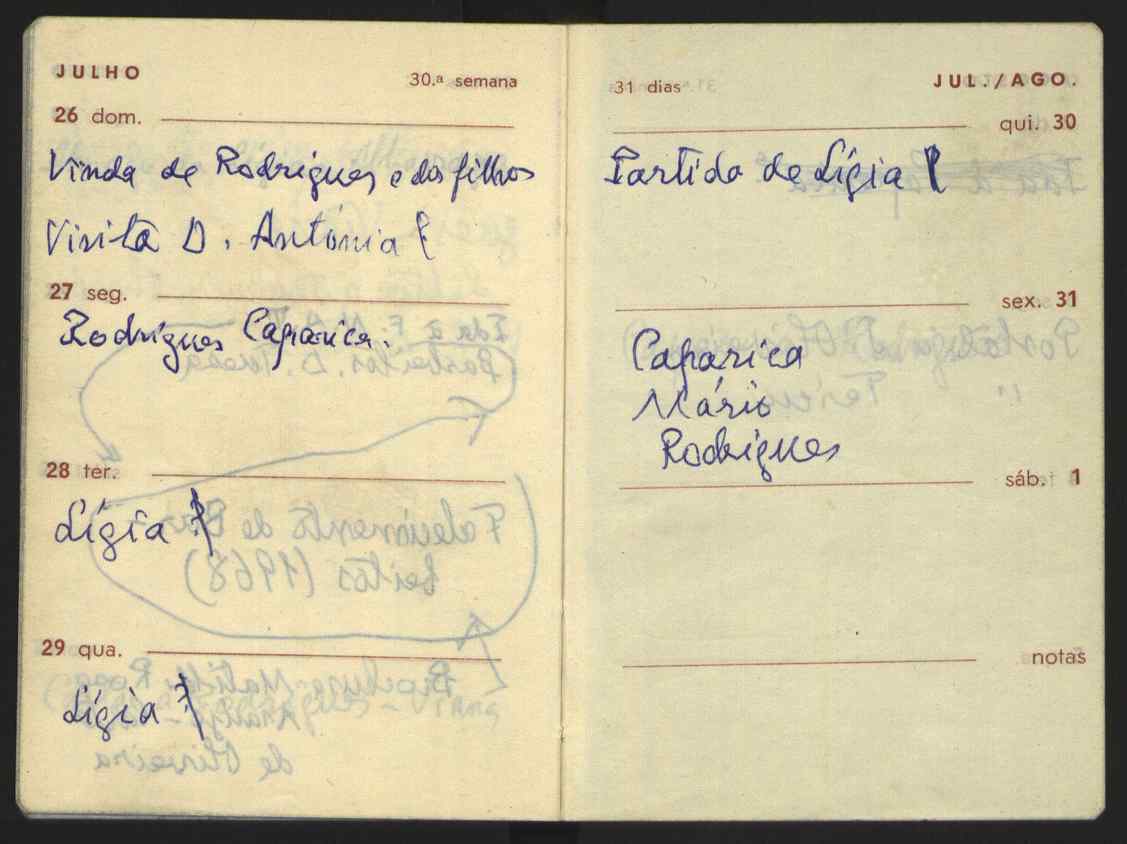 JULHO
30.ª semana
26 dom.
Vinda de Rodrigues e dos filhos
Visita D. Antónia
27 seg.
Rodrigues Caparica.
28 ter.
Lígia
29 qua.
Lígia
31 dias
JUL./AGO.
qui. 30
Partida de Lígia
sex. 31
Caparica
Mário
Rodrigues
sáb. 1
notas